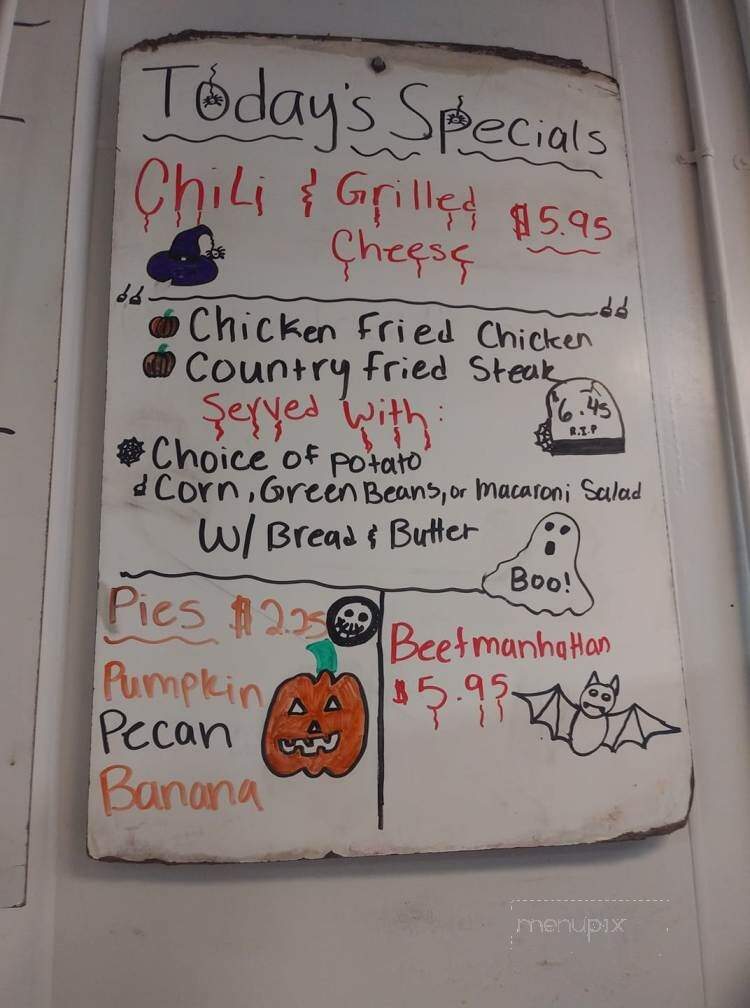 Today's Specials
Chili & Grilled
Cheese
$5.95
Chicken Fried Chicken
Country Fried Steak
$6.45
R.I.P
Served With:
Choice of Potato
Corn, Green Beans, or Macaroni Salad
W/ Bread & Butter
Boo!
Pies $2.25
Pumpkin
Pecan
Banana
Beefmanhattan
$5.95
menupix